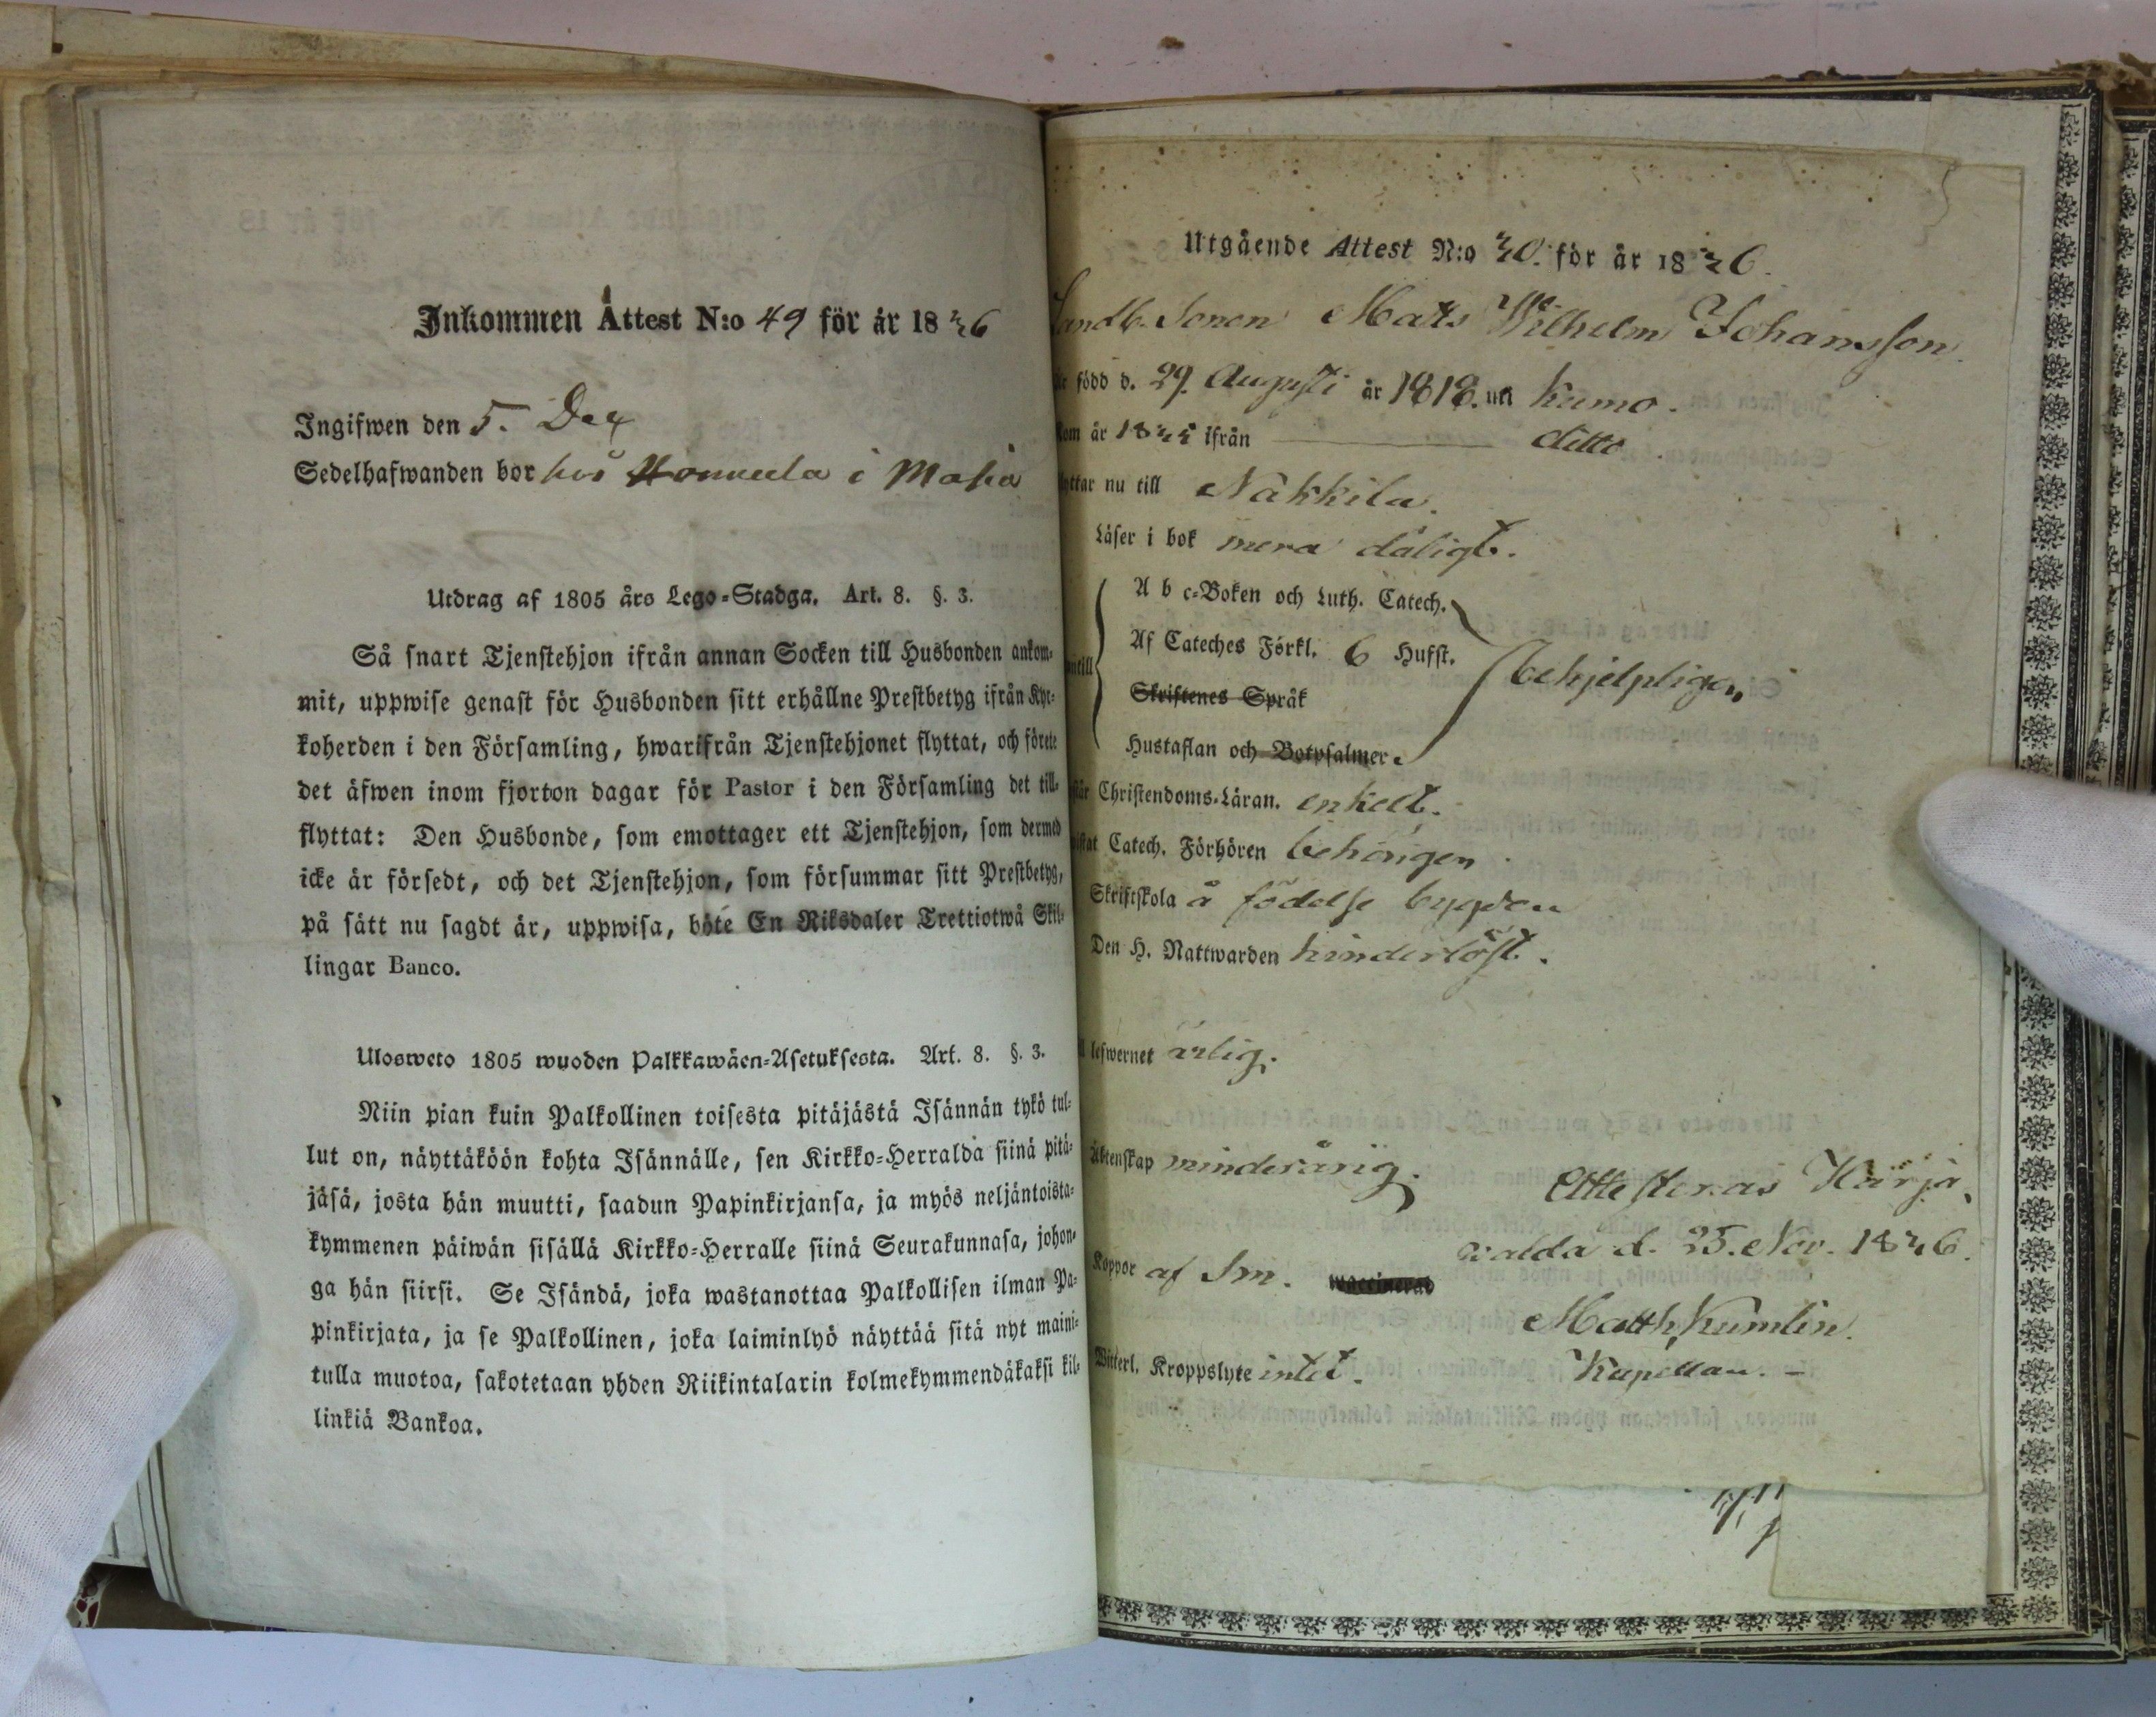 Inkommen Attest N:o 49 för år 1836
Ingifwen den 5. Dec
Sedelhafwanden bor hos i
Utdrag af 1805 års Lego-Stadga. Art. 8. §. 3.
Så snart Tjenstehjon ifrån annan Socken till Husbonden ankom-
mit, uppwise genast för Husbonden sitt erhållne Prestbetyg ifrån Kyr-
koherden i den Församling, hwarifrån Tjenstehjonet flyttat, och förete
det äfwen inom fjorton dagar för Pastor i den Församling det till-
flyttat: Den Husbonde, som emottager ett Tjenstehjon, som dermed
icke är försedt, och det Tjenstehjon, som försummar sitt Prestbetyg,
på sätt nu sagdt är, uppwisa, böte En Riksdaler Trettiotwå Skil-
lingar Banco.
Ulosweto 1805 wuoden Palkkawäen-Asetuksesta. Art. 8. §. 3.
Niin pian kuin Palkollinen toisesta pitäjästä Isännän tykö tul-
lut on, näyttäköön kohta Isännälle, sen Kirkko-Herralda siinä pitä-
jäsä, josta hän muutti, saadun Papinkirjansa, ja myös neljäntoista-
kymmenen päiwän sisällä Kirkko-Herralle siinä Seurakunnasa, johon-
ga hän siirsi. Se Isändä, joka wastanottaa Palkollisen ilman Pa-
pinkirjata, ja se Palkollinen, joka laiminlyö näyttää sitä nyt maini-
tulla muotoa, sakotetaan yhden Riikintalarin kolmekymmendäkaksi kil-
linkiä Bankoa.
Utgående Attest N:o 30. för år 1836.
Landb. Sonen Mats Wilhelm Johansson
är född d. 29. Augusti år 1818. uti Kumo.
kom år ifrån ditto.
flyttar nu till Nakkila.
Läser i bok mera dåligt.
A b c-Boken och Luth. Catech.
Af Cateches Förkl. 6 Hufst.
Skriftenes Språk
Hustaflan och Botpsalmer.
behjelpligen
Christendoms-Läran. enkelt.
Catech. Förhören behörigen
Skriftskola å födelse bygden
Den H. Nattwarden hinderlöst.
lefwernet ärlig.
Äktenskap minderårig.
Koppor af Sm. waccinerad
Witterl. Kroppslyte intet.
Attesteras Harja
walda d. 25. Nov. 1836.
Matth. Kumlin.
Kapellan.